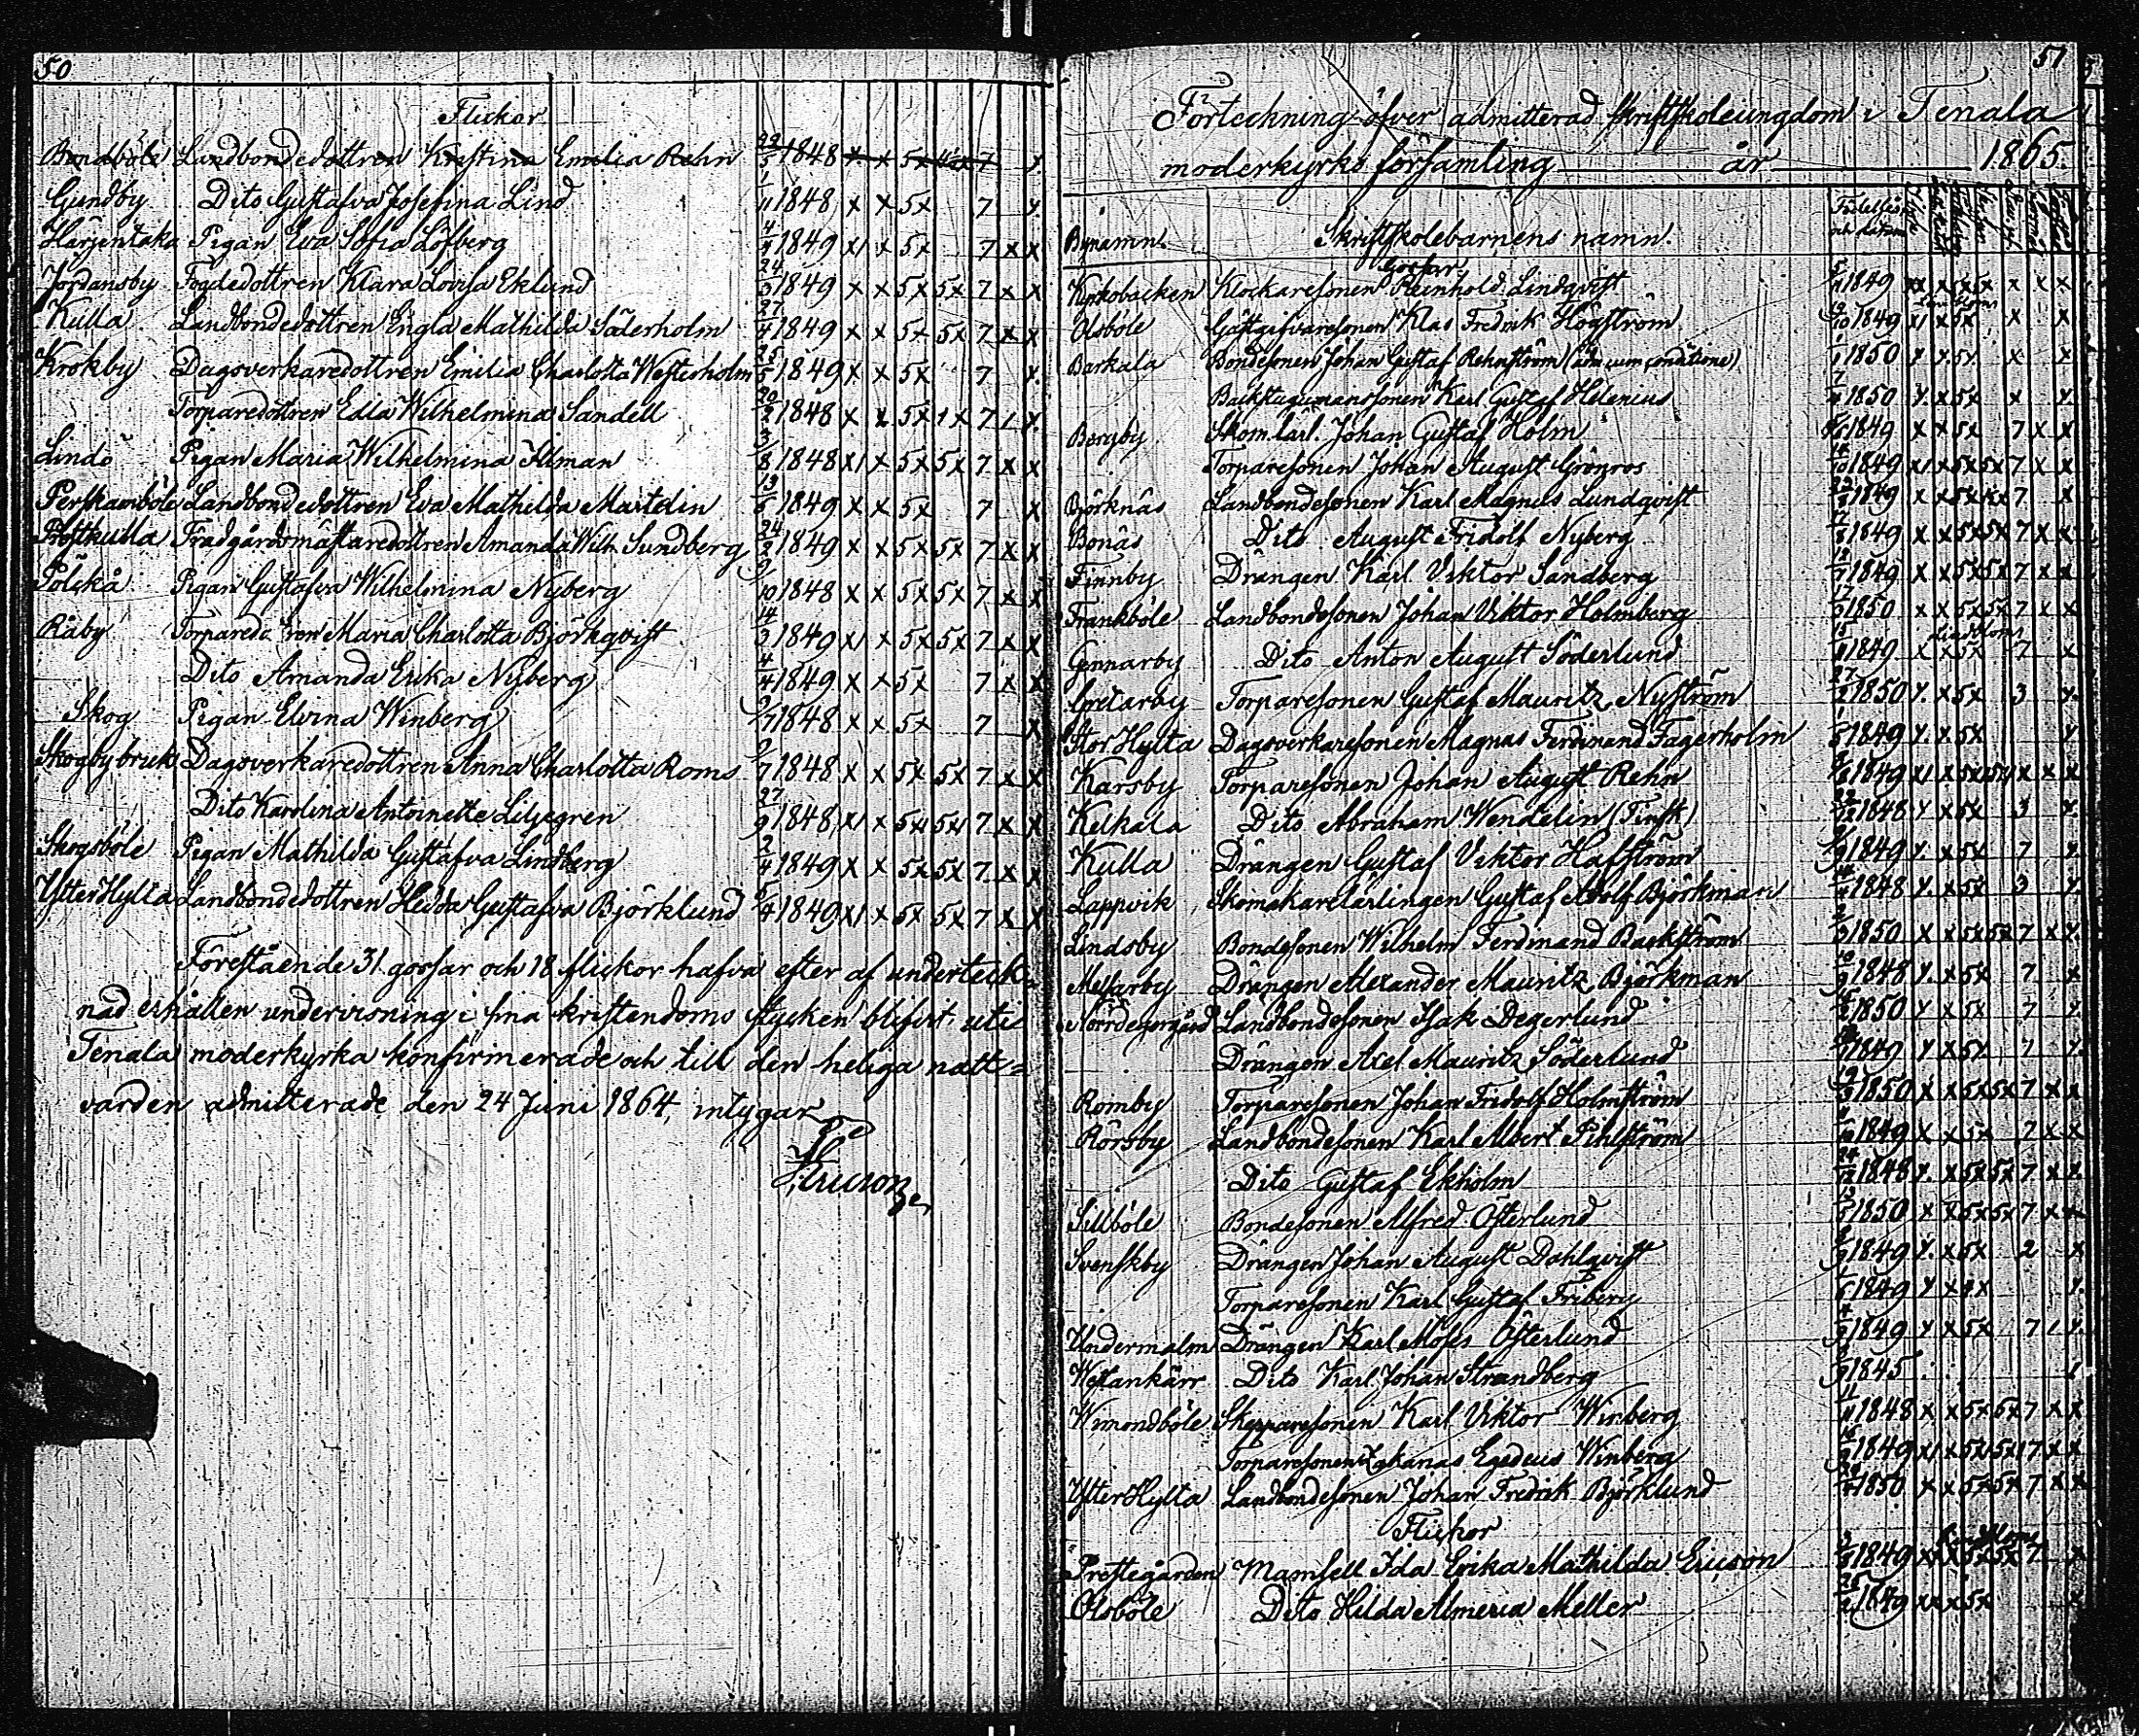 50
Flickor
Bondböle Landbondedottren Kristina Emilia Rehn 22/5 1848 x x 5x 7 x
Gundby Dito Gustafva Josefina Lind 1/11 1848 x x 5x 7 x
Harjentaka Pigan Eva Sofia Löfberg 1849 x x 5x 7 x x
Jordansby Fogdedottren Klara Lovisa Eklund 24/3 1849 x x 5x 5x 7 x x
Kulla Landbondedottren Engla Mathilda Säterholm 27/4 1849 x x 5x 5x 7 x x
Krokby Dagsverkaredottren Emilia Charlotta Westerholm 1849 x x 5x 7 x
Torparedottren Edla Wilhelmina Sandell 1848 x x 5x 1x 7 1 x
Lindö Pigan Maria Wilhelmina Illman 3/8 1848 x x 5x 5x 7 x x
Perskamböle Landbondedottren Eva Mathilda Martelin 13/5 1849 x x 5x 7 x
Prostkulla Trädgårdsmästaredottren Amanda Wilh. Sundberg 24/2 1849 x x 5x 5x 7 x x
Pölskå Pigan Gustafva Wilhelmina Nyberg 9/10 1848 x x 5x 5x 7 x x
Råby Maria Charlotta Björkqvist 14/3 1849 x x 5x 5x 7 x x
Dito Amanda Erika Nyberg 4/4 1849 x x 5x 7 x x
Skog Pigan Elvina Winberg 1848 x x 5x 7 x
Skogby bruk Dagsverkaredottren Anna Charlotta Roms 1848 x x 5x 5x 7 x x
Dito Karolina Antoinette Liljegren 27/9 1848 x x 5x 5x 7 x x
Skogsböle Pigan Mathilda Gustafva Lindberg 2/4 1849 x x 5x 5x 7 x x
YtterHylta Landbondedottren Hedda Gustafva Björklund 5/4 1849 x x 5x 5x 7 x x
Förestående 31 gossar och 18 flickor hafva efter af underteck=
nad erhållen undervisning i sina kristendoms stycken blifvit uti
Tenala moderkyrka konfirmerade och till den heliga natt=
varden admitterade den 24 Juni 1864, intygar
Ericson
51
Förteckning öfver admitterad skriftskoleungdom i Tenala
moderkyrko församling år 1865.
Bynamn. Skriftskolebarnens namn. Födelseår och datum
Gossar
Kyrkobacken Klockaresonen Reinhold Lindqvist 1849
Olsböle Gästgifvaresonen Klas Fredrik Högström 1849
Barkala Bondesonen Johan Gustaf Rehnström (adm. cum conditione) 1850
Backstugumanssonen Karl Gustaf Helenius 1850
Bergby Skom. lärl. Johan Gustaf Holm 1849
Torparesonen Johan August Grönroos 1849
Björknäs Landbondesonen Karl Magnus Lundqvist 1849
Bonäs Dito August Fridolf Nyberg 1849
Finnby Drängen Karl Viktor Sandberg 1849
Frankböle Landbondesonen Johan Viktor Holmberg 1850
Gennarby Dito Anton August Söderlund 1849
Gretarby Torparesonen Gustaf Mauritz Nyström 1850
Stor Hylta Dagsverkaresonen Magnus Ferdinand Fagerholm 1849
Karsby Torparesonen Johan August Rehn 1849
Kelkala Dito Abraham Wendelin (Finsk) 1848
Kulla Drängen Gustaf Viktor Hafström 1849
Lappvik Skomakarelärlingen Gustaf Adolf Björkman 1848
Lindsby Bondesonen Wilhelm Ferdinand Backström 1850
Melsarby Drängen Alexander Mauritz Björkman 1848
Landbondesonen Isak Degerlund 1850
Drängen Axel Mauritz Söderlund 1849
Romby Torparesonen Johan Fridolf Holmström 1850
Rörsby Landbondesonen Karl Albert Pihlström 1849
Dito Gustaf Ekholm 1848
Sillböle Bondesonen Alfred Österlund 1850
Svenskby Drängen Johan August Dahlqvist 1849
Torparesonen Karl Gustaf Friberg 1849
Undermalm Drängen Karl Moses Österlund 1849
Westankärr Dito Karl Johan Strandberg 1845
Wimondböle Skepparesonen Karl Viktor Winberg 1848
Torparesonen Zakarias Egedeus Winberg 1849
YtterHylta Landbondesonen Johan Fredrik Björklund 1850
Flickor
Prestegården Mamsell Ida Erika Mathilda Ericson 1849
Olsböle Dito Hilda Almeria Meller 1849